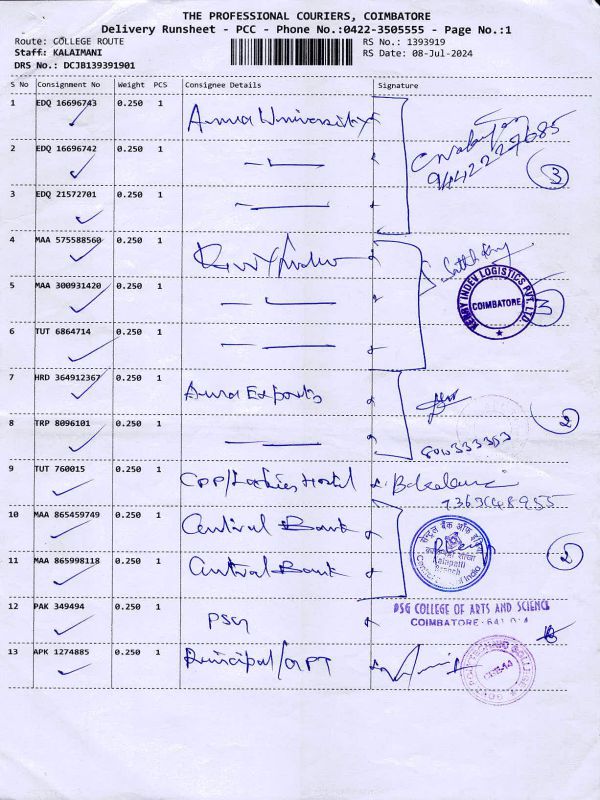 THE PROFESSIONAL COURIERS, COIMBATORE
Delivery Runsheet - PCC - Phone No.:0422-3505555 - Page No.:1
Route: COLLEGE ROUTE RS No.: 1393919
Staff: KALAIMANI RS Date: 08-Jul-2024
DRS No.: DCJB139391901
S No Consignment No Weight PCS Consignee Details Signature
1 EDQ 16696743 0.250 1 Anna University
2 EDQ 16696742 0.250 1
3 EDQ 21572701 0.250 1
3
4 MAA 575588560 0.250 1
5 MAA 300931420 0.250 1
KERRY INDEV LOGISTICS PVT. LTD
COIMBATORE
3
6 TUT 6864714 0.250 1
7 HRD 364912367 0.250 1 Exports
2
8 TRP 8096101 0.250 1
9 TUT 760015 0.250 1 CPP/Ladies Hostel
10 MAA 865459749 0.250 1 Central Bank
11 MAA 865998118 0.250 1 Central Bank
सेन्ट्रल बैंक ऑफ इंडिया
Kalapatti
Branch
Central Bank of India
2
12 PAK 349494 0.250 1 PSG
PSG COLLEGE OF ARTS AND SCIENCE
COIMBATORE - 641 014
13 APK 1274885 0.250 1 Principal/GPT